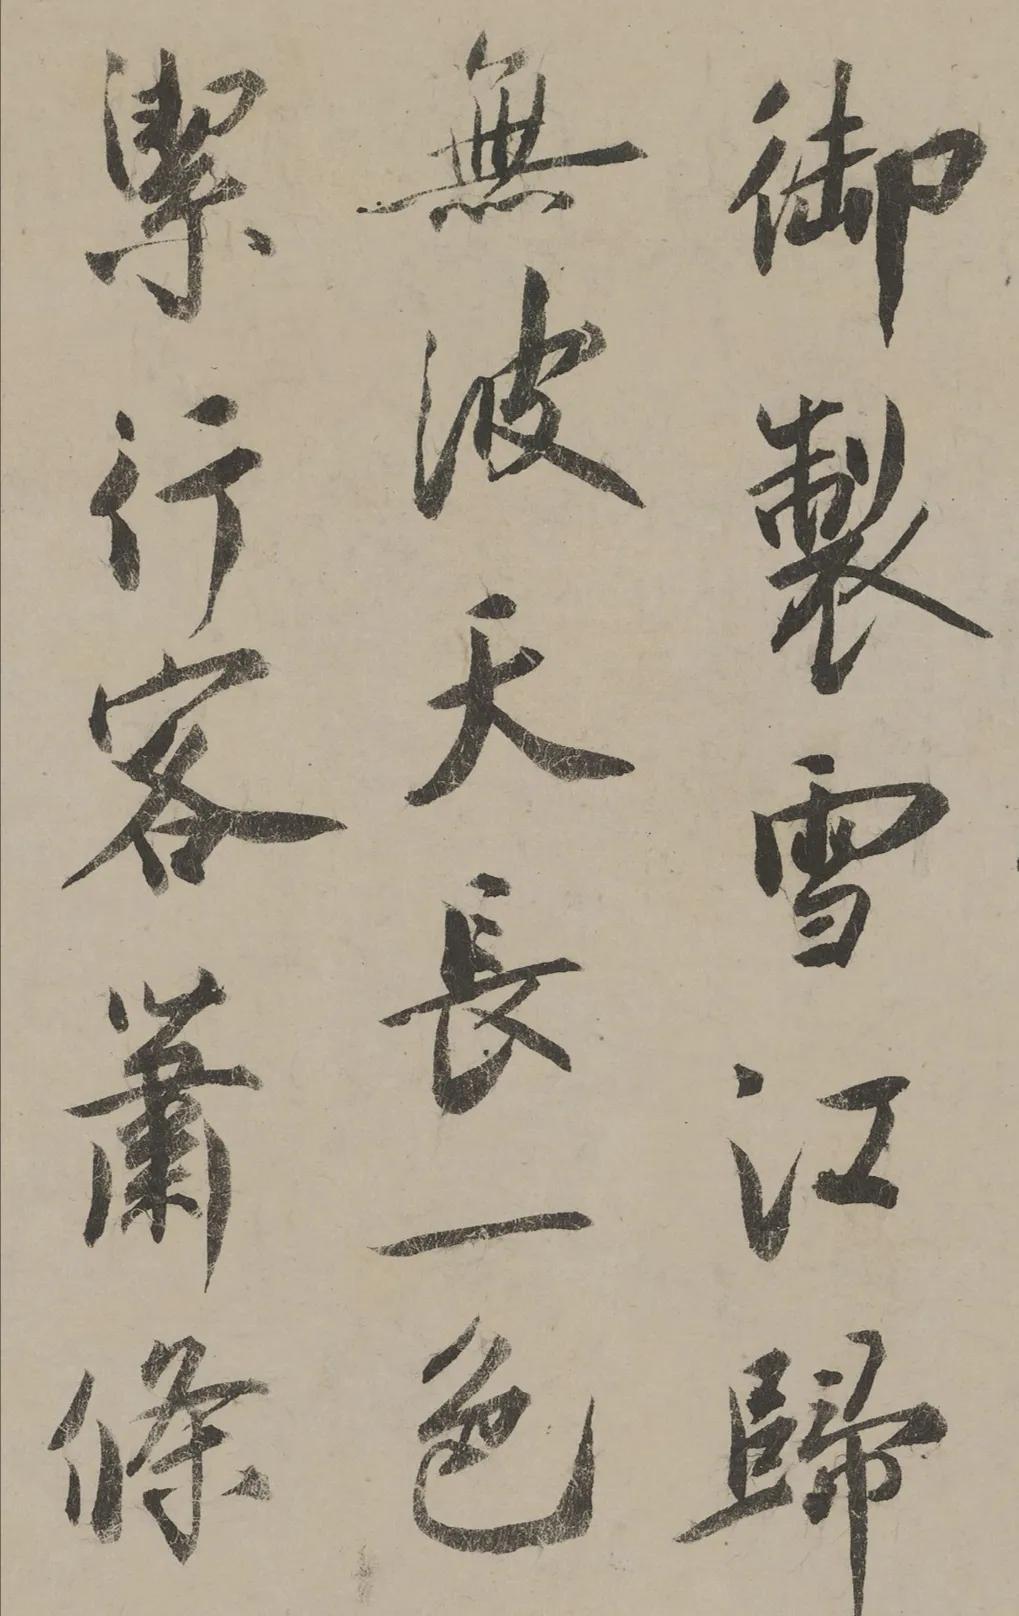 御製雪江歸
無波天長一色
潔行客蕭條